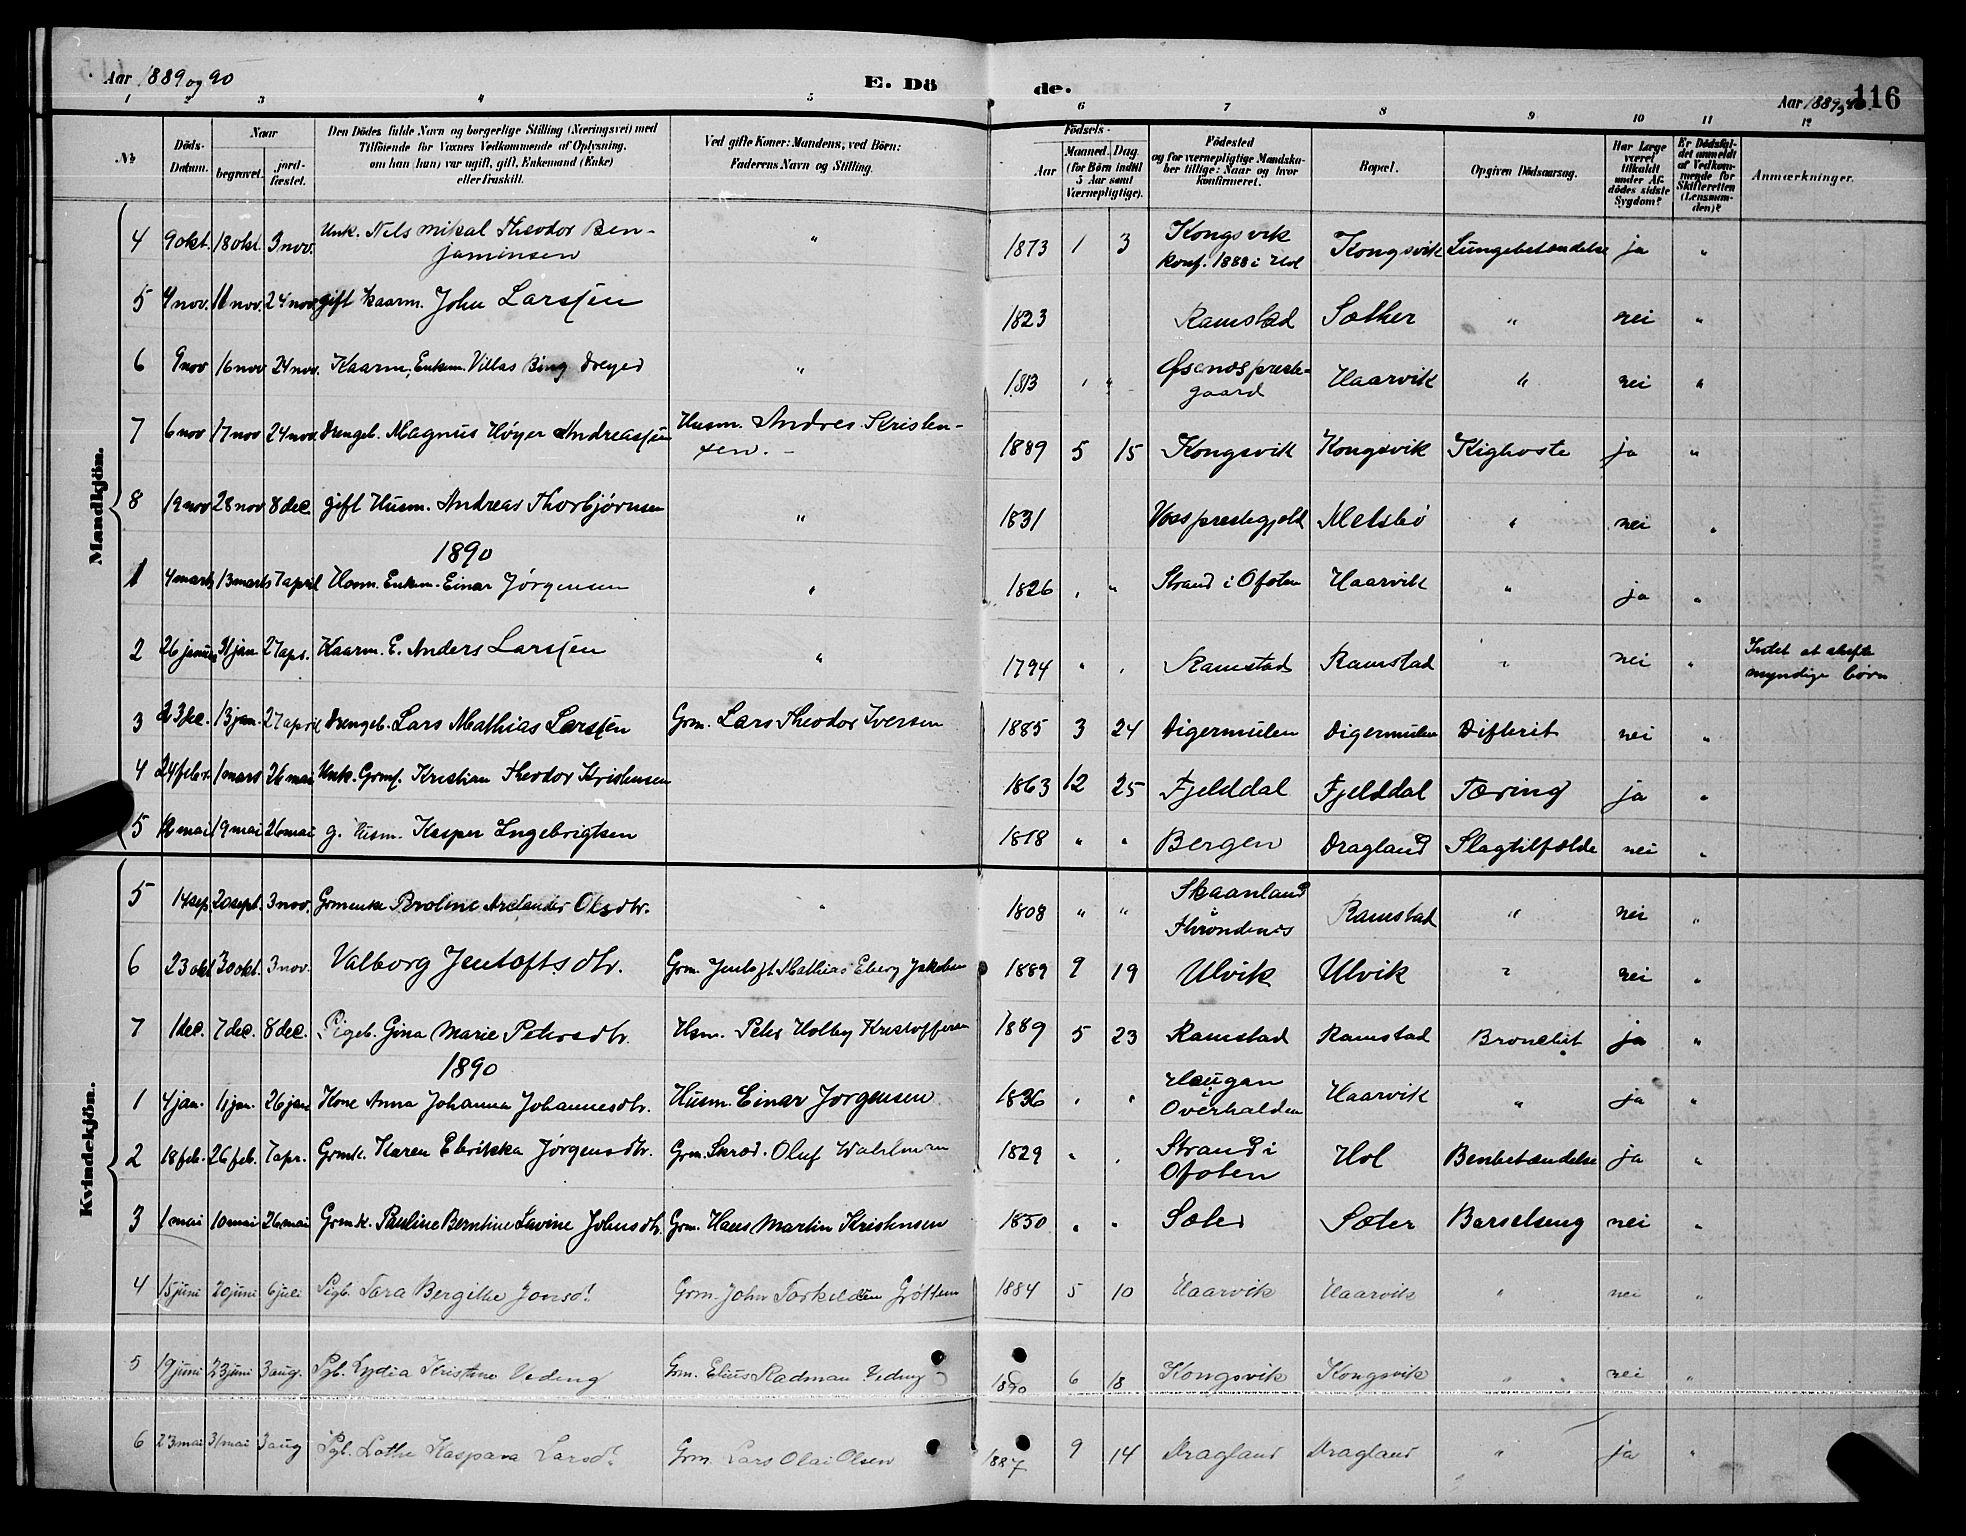 Aar 1889 og 90
E. Dö
de.
Aar 1889 og 90.
116
1 2 3 4 5 6 7 8 9 10 11 12
No
Döds-Datum.
Naar
begravet.
jord-fæstet.
Den Dödes fulde Navn og borgerlige Stilling (Næringsvei) med
Tilföiende for Voxnes Vedkommende af Oplysning,
om han (hun) var ugift, gift, Enkemand (Enke)
eller fraskilt.
Ved gifte Koner: Mandens, ved Börn:
Faderens Navn og Stilling.
Födsels-
Aar
Maaned.
Dag.
(for Börn indtil
5 Aar samt
Værnepligtige).
Födested
og for værnepligtige Mandska-
ber tillige: Naar og hvor
konfirmeret.
Bopæl.
Opgiven Dödsaarsag.
Har Læge
været
tilkaldt
under Af-
dödes sidste
Sygdom?
Er Dödsfal-
det anmeldt
af Vedkom-
mende for
Skifteretten
(Lensman-
den)?
Anmærkninger.
Mandkjön.
4 9 okt. 18 okt. 3 nov. Unk. Nils Mikal Theodor Ben-
jaminsen " 1873 1 3 Kongsvik
konf. 1888 i Hol Kongsvik Lungebetændelse ja "
5 4 nov. 11 nov. 24 nov. gift kaarm. John Larssen 1823 Ramstad Sæther " nei "
6 9 nov 16 nov 24 nov. Kaarm, Enkem. Villas Bing Dreyer " 1813 " " præste-
gaard Haarvik " nei "
7 6 nov 17 nov 24 nov. Drengeb. Magnus Høyer Andreassen Husm. Andres Kristen-
sen. - 1889 5 15 Kongsvik Kongsvik Kighoste ja "
8 19 nov 28 nov 8 dec gift Husm. Andreas Thorbjørnsen " 1831 Vosspræstegjeld Melsbö " nei "
1890
1 4 marts 13 marts 7 april Husm. Enkem. Einar Jørgensen " 1826 " " Strand i Ofoten Haarvik " ja "
2 26 januar 31 jan 27 apr. Kaarm. E. Anders Larssen " 1794 " " Ramstad Ramstad " nei " Intet at skifte
myndige børn
3 23 dec. 13 jan. 27 april Drengeb. Lars Mathias Larssen Grm. Lars Theodor Iversen 1885 3 24 Digermulen Digermulen Difterit nei "
4 24 febr. 1 mars 26 mai Unk. Grmf. Kristian Theodor Kristensen 1863 12 25 Fjelddal Fjelddal Tæring ja "
5 12 mai 19 mai 26 mai g. Husm. Kasper Ingebrigtsen 1818 " " Bergen Dragland Slagtilfælde nei "
Kvindekjön.
5 14 sep. 20 sept. 3 nov. Grmenke Broline Olsdtr. " 1808 " " Skaanland
i
Throndenes Ramstad " nei "
6 23 okt 30 okt. 3 nov. Valborg Jentoftsdtr. Grm. Jentoft Mathias Eberg Jakobsen 1889 9 19 Ulvik Ulvik " nei "
7 1 dec. 7 dec. 8 dec. Pigeb. Gina Marie Petersdtr. Hsm. Peter Holby Kristoffersen 1889 5 23 Ramstad Ramstad Bronchit ja "
1890
1 4 jan. 11 jan. 26 jan. Kone Anna Johanna Johannesdtr. Husm. Einar Jørgensen 1836 " " Haugan
i
Overhalden Haarvik " ja "
2 18 feb. 26 feb. 7 apr. Grmk. Karen Elrikka Jørgensdtr. Grm. Skræd. Oluf Wahlman 1829 " " Strand i
Ofoten Hol Benbetændelse ja "
3 1 mai 10 mai 26 mai Grmk. Pauline Berntine Lavine Johnsdtr. Grm. Hans Martin Kristensen 1850 " " Sæter Sæter Barselseng nei "
4 15 juni 20 juni 6 juli Pigb. Sara Bergitte Jonsd. Grm. John Torkildsen Grøttem 1884 5 10 Haarvik Haarvik " nei "
5 19 juni 23 juni 3 aug. Pgb. Lydia Kristine Veding Grm. Elius Radman Veding 1890 6 18 Kongsvik Kongsvik " " nei "
6 23 mai 31 mai 3 aug Pgb. Kaspara Larsd. Grm. Lars Olai Olsen 1887 9 14 Dragland Dragland " ja "